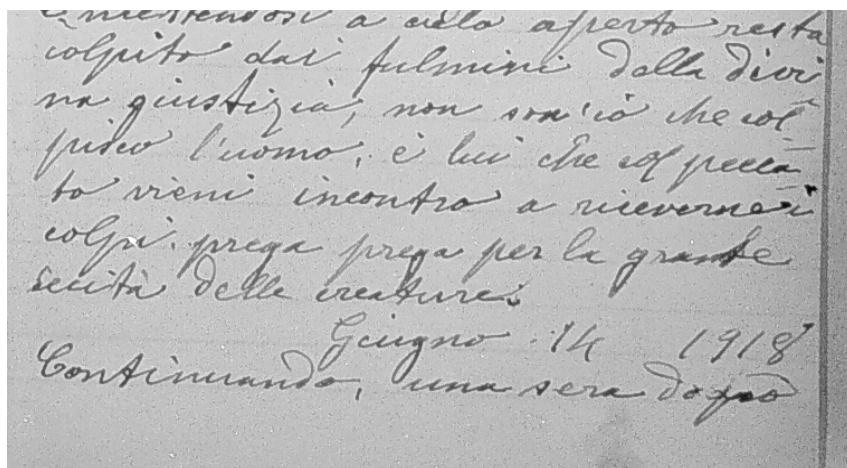 e mettendosi a cielo aperto resta
colpito dai fulmini della divi
na giustizia, non son'io che col_
pisco l'uomo, è lui che col pecca_
to vieni incontro a riceverne i
colpi. prega prega per la grante
cecità delle creature.
Giugno 14 1918
Continuando, una sera dopo